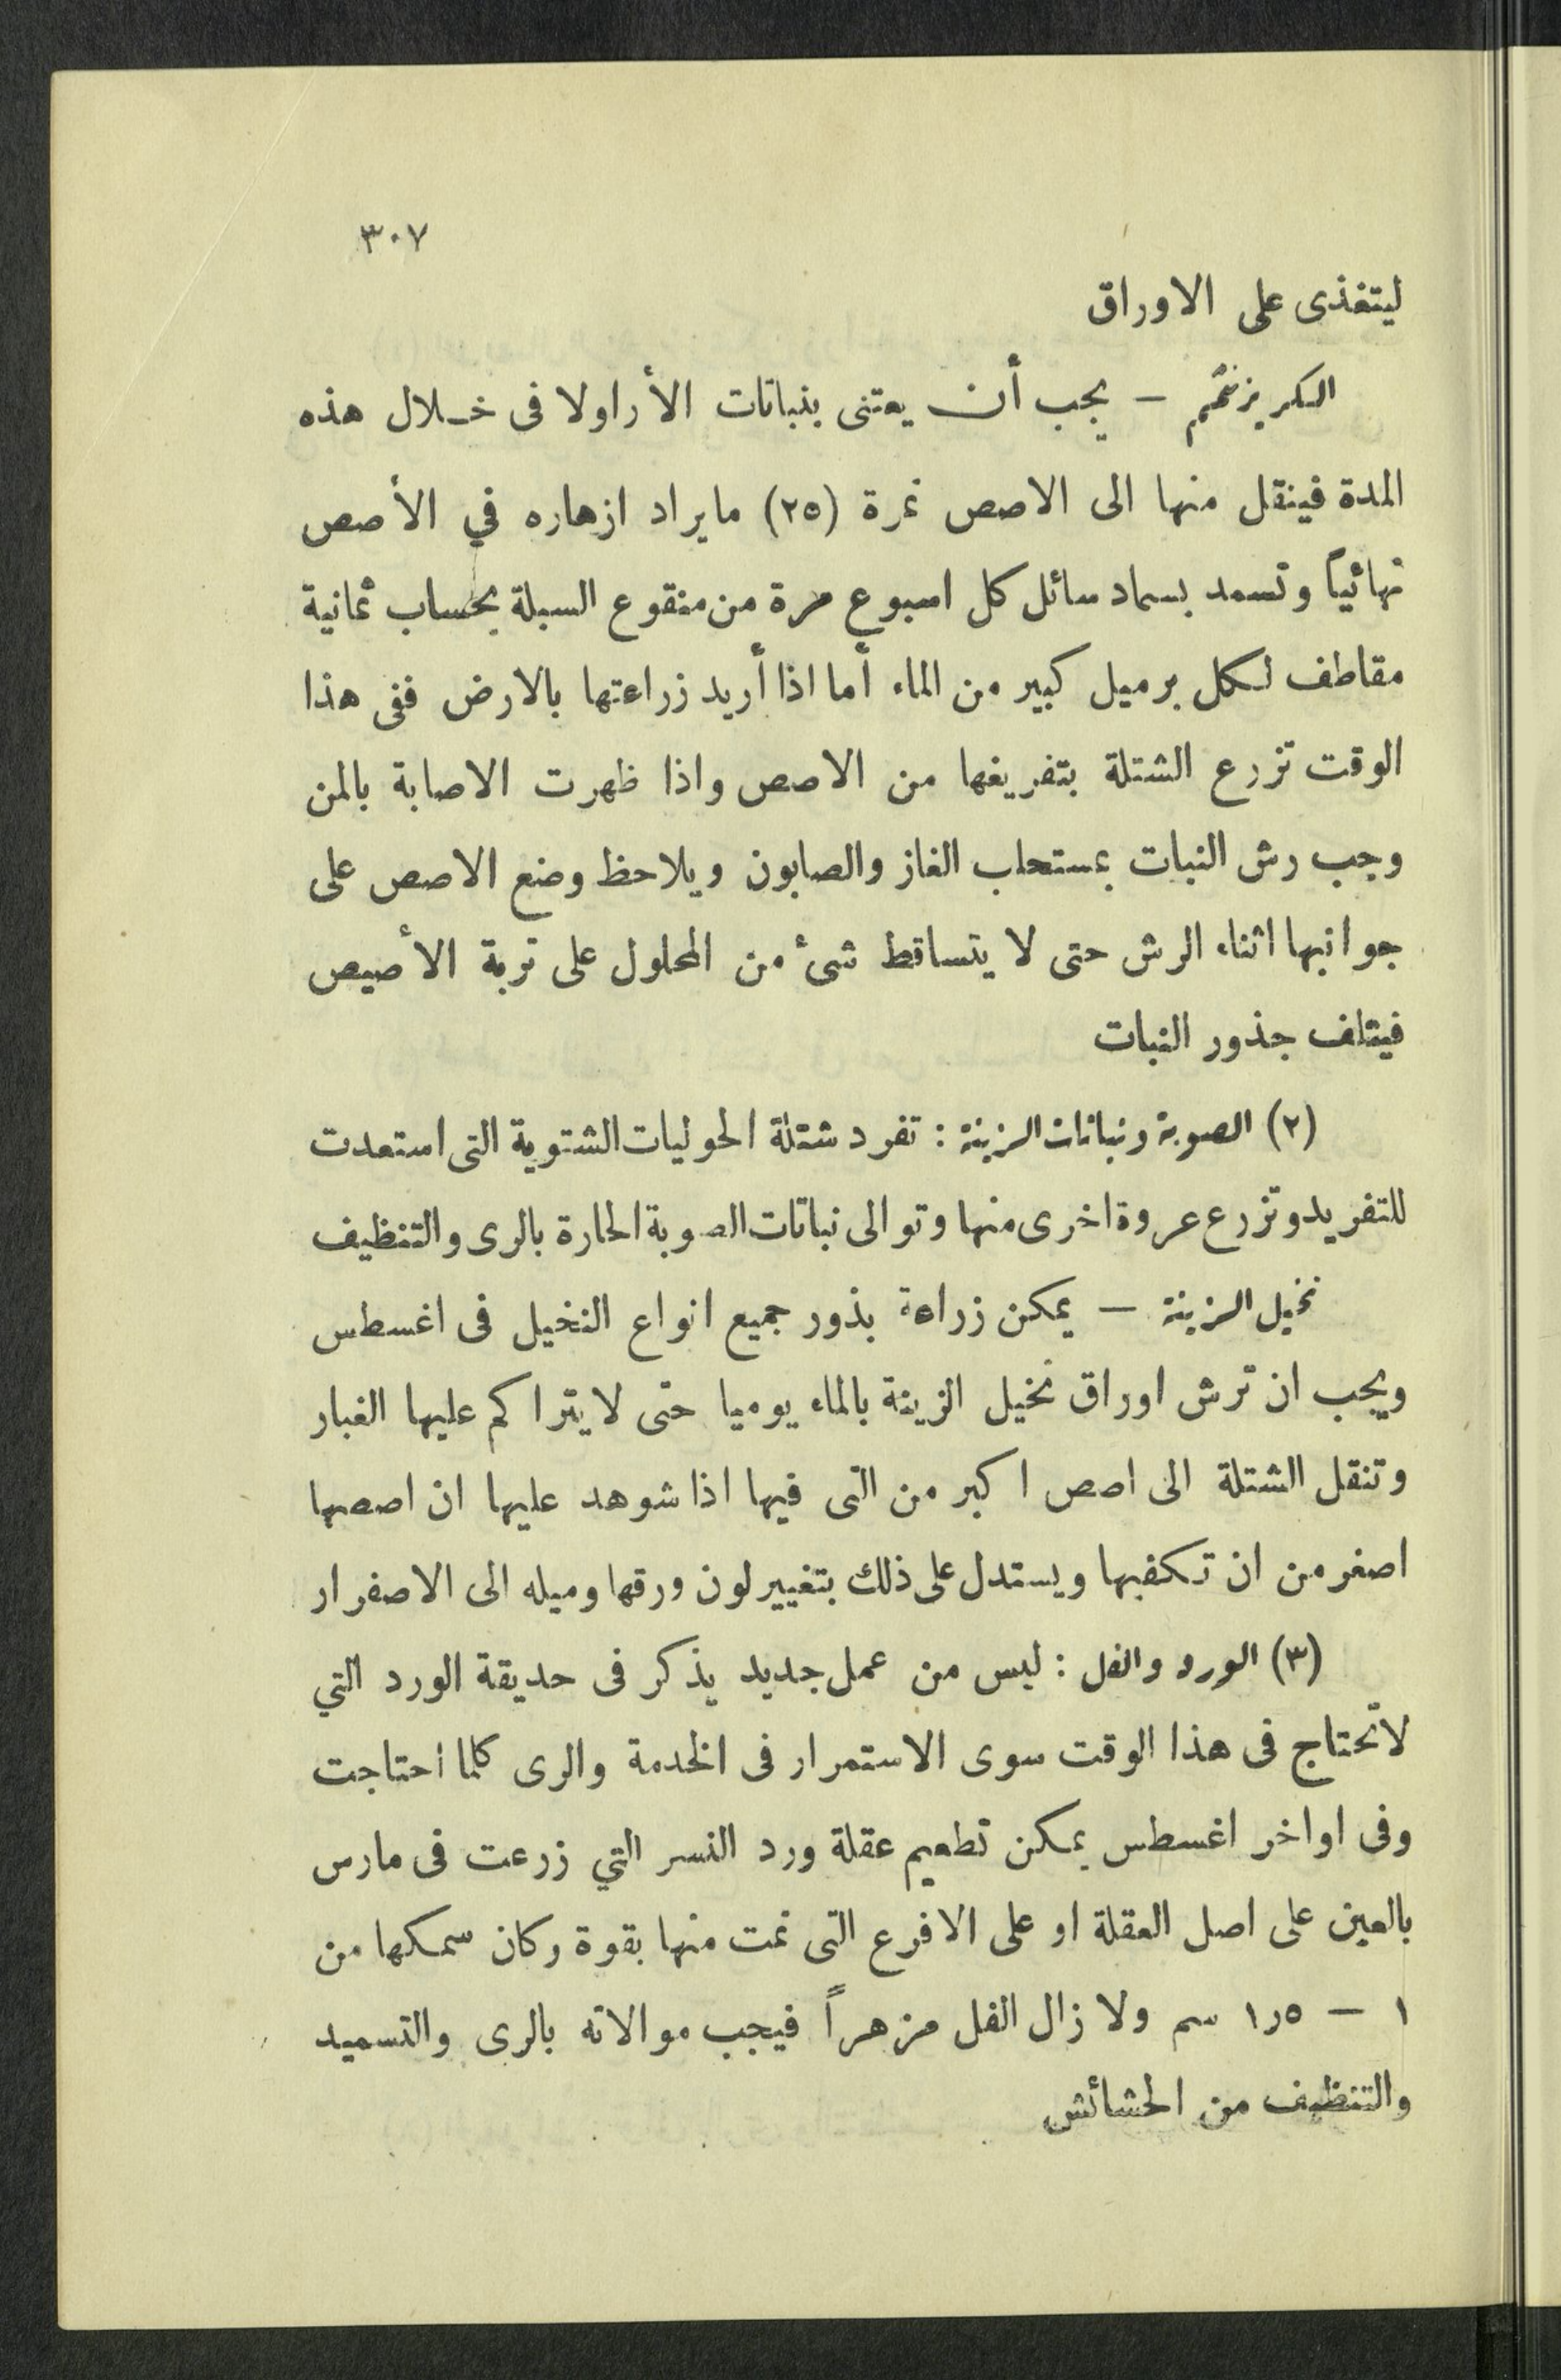 ٣٠٧
ليتغذى على الاوراق
الكريزنثمم — يجب أن يعتنى بنباتات الأراولا فى خـلال هذه
المدة فينقل منها الى الاصص نمرة (٢٥) مايراد ازهاره في الأصص
نهائياً وتسمد بسماد سائل كل اسبوع مرة من منقوع السبلة بحساب ثمانية
مقاطف لكل برميل كبير من الماء أما اذا أريد زراعتها بالارض ففى هذا
الوقت تزرع الشتلة بتفريغها من الاصص واذا ظهرت الاصابة بالمن
وجب رش النبات بمستحلب الغاز والصابون ويلاحظ وضع الاصص على
جوانبها اثناء الرش حتى لا يتساقط شىء من المحلول على تربة الأصيص
فيتلف جذور النبات
(٢) الصوبة ونباتات الزينة : تفرد شتلة الحوليات الشتوية التى استعدت
للتفريد وتزرع عروة اخرى منها وتوالى نباتات الصوبة الحارة بالرى والتنظيف
نخيل الزينة — يمكن زراعة بذور جميع انواع النخيل فى اغسطس
ويجب ان ترش اوراق نخيل الزينة بالماء يوميا حتى لا يتراكم عليها الغبار
وتنقل الشتلة الى اصص اكبر من التى فيها اذا شوهد عليها ان اصصها
اصغر من ان تكفيها ويستدل على ذلك بتغيير لون ورقها وميله الى الاصفرار
(٣) الورد والفل : ليس من عمل جديد يذكر فى حديقة الورد التي
لاتحتاج فى هذا الوقت سوى الاستمرار فى الخدمة والرى كلما احتاجت
وفى اواخر اغسطس يمكن تطعيم عقلة ورد النسر التي زرعت فى مارس
بالعين على اصل العقلة او على الافرع التى نمت منها بقوة وكان سمكها من
١ — ١٫٥ سم ولا زال الفل مزهراً فيجب موالاته بالرى والتسميد
والتنظيف من الحشائش